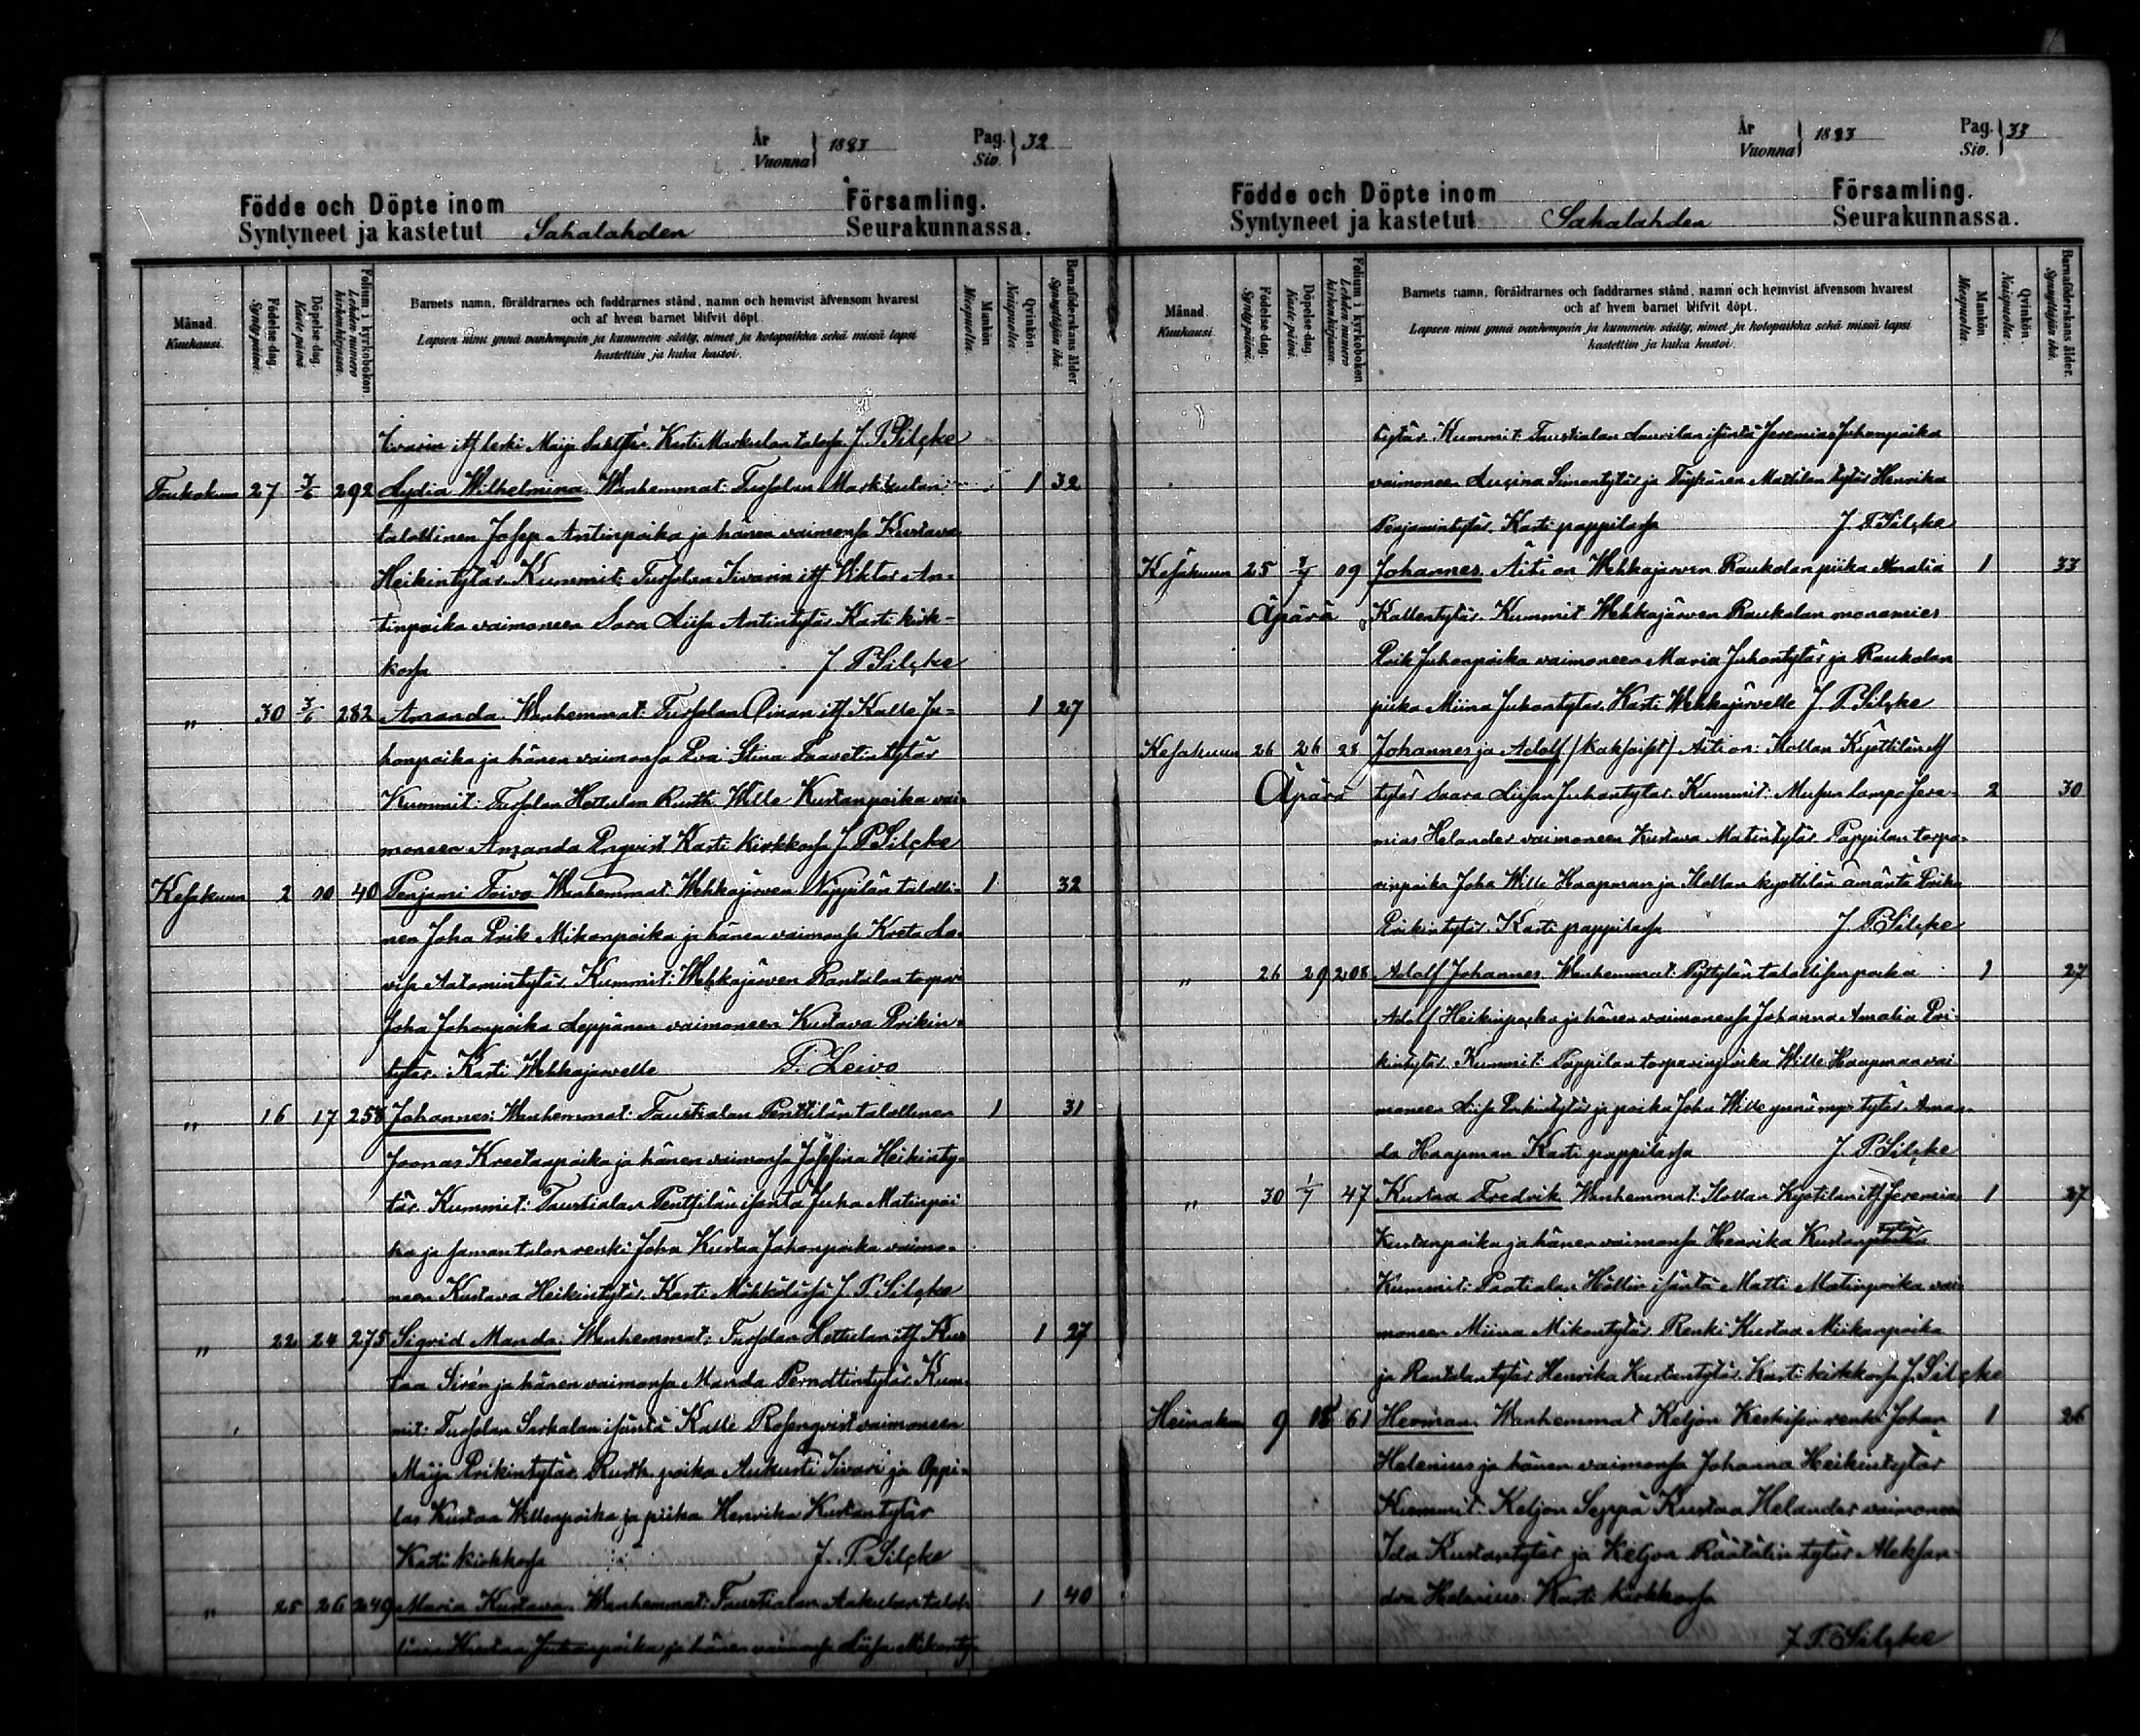 År
Vuonna } 1883
Pag.
Siv. } 32
Födde och Döpte inom Församling.
Syntyneet ja kastetut Sahalahden Seurakunnassa.
Månad.
Kuukausi.
Födelse dag.
Synty päivä.
Döpelse dag.
Kaste päivä
Folium i kyrkobokon
Lehden numero kirkonkirjassa.
Barnets namn, föräldrarnes och faddrarnes stånd, namn och hemvist äfvensom hvarest
och af hvem barnet blifvit döpt.
Lapsen nimi ynnä vanhempain ja kummein sääty, nimet ja kotopaikka sekä missä lapsi
kastettiin ja kuka kastoi.
Mankön
Miespuolia.
Qvinkön.
Naispuolia.
Barnaföderskans ålder
Synnyttäjän ikä.
Iivarin itf leski Maija Kasti Markulan talossa J. P. Silçke
Toukokuu 27 3/6 292 Lydia Wilhelmina Wanhemmat: Turpolan Markkulan 1 32
talollinen Josep Antinpoika ja hänen vaimonsa Kustava
Heikintytär. Kummit: Iivarin itf Viktor An-
tinpoika vaimoneen Sara Liisa Antintytär Kasti kirk-
kossa J. P. Silçke
" 30 3/6 282 Amanda Wanhemmat: itf Kalle Ju- 1 27
honpoika ja hänen vaimonsa Eva Stina Taavetintytär
Kummit: Hettulan Rusth. Wille Kustanpoika vai-
moneen Amanda Enqvist Kasti Kirkkossa J. P. Silçke
Kesäkuun 2 10 40 Penjami Toivo Wanhemmat: Wehkajärven Nappilan talolli- 1 32
nen Joha Erik Mikonpoika ja hänen vaimonsa Kreta Lo-
visa Aatamintytär Kummit: Wehkajärven Rantalan torpar
Joha Johonpoika Leppänen vaimoneen Kustava Erikin-
tytär. Kasti Wehkajärvelle P. Leivo
" 16 17 258 Johannes: Wanhemmat: Taustialan Penttilän talollinen 1 31
Joonas Kreetanpoika ja hänen vaimonsa Josefina Heikinty-
tär. Kummit: Taustialan Penttilän isäntä Juha Matinpoi
ka ja saman talon renki Joha Kustaa Johanpoika vaimo-
neen Kustava Heikintytär. Kasti J. P. Silçke
" 22 24 275 Sigrid Manda: Wanhemmat: Hettulan itf Kus 1 27
taa Sirén ja hänen vaimonsa Manda Perndtintytär. Kum-
mit: isäntä Kalle Rosenqvist vaimoneen
Maija Erikintytär Rusth. poika Aukusti Iivari ja Oppi-
las Kustaa Willenpoika ja piika Henrika Kustantytär
Kasti kirkkossa J. P. Silçke
" 25 26 249 Maria Kustava. Wanhemmat: Taustialan talol- 1 40
linen Kustaa Juhanpoika ja hänen vaimonsa Liisa Mikonty-
År
Vuonna } 1883
Pag.
Siv. } 33
Födde och Döpte inom Församling.
Syntyneet ja kastetut Sahalahden Seurakunnassa.
Månad
Kuukausi
Födelse dag.
Synty päivä.
Döpelse dag.
Kaste päivä.
Folium i kyrkobokon
Lehden numero kirkonkirjassa.
Barnets namn, föräldrarnes och faddrarnes stånd, namn och hemvist äfvensom hvarest
och af hvem barnet blifvit döpt.
Lapsen nimi ynnä vanhempain ja kummein sääty, nimet ja kotopaikka sekä missä lapsi
kastettiin ja kuka kastoi.
Mankön
Miespuolia.
Qvinkön.
Naispuolia.
Barnaföderskans ålder.
Synnyttäjän ikä.
tytär. Kummit: Taustialan Laurilan isäntä Jeremias Juhanpoika
vaimoneen Simontytär ja Mattilan tytär Henrika
Penjamintytär. Kasti pappilassa J. P. Silçke
Kesäkuun 25 2/7 19 Johannes. Äiti on Wehkajärven Raukolan piika Amalia 1 33
Äpärä Kallentytär. Kummit Wehkajärven Raukolan
Erik Juhonpoika vaimoneen Maria Juhontytär ja Raukolan
piika Miina Juhontytär. Kasti Wehkajärvelle J. P. Silçke
Kesäkuun 26 26 28 Johannes ja Adolf /Kaksoiset/ Äiti on: itf
Äpärä tytär Saara Liisa Juhontytär. Kummit: lampo Jere- 2 30
mias Helander vaimoneen Kustava Matintytär Pappilan torpa-
rinpoika Joha Wille Haapman ja emäntä Erika
Erikintytär. Kasti pappilassa J. P. Silçke
" 26 29 208 Adolf Johannes. Wanhemmat: Pyttylän talollisenpoika 1 27
Adolf Heikinpoika ja hänen vaimonensa Johanna Amalia Eri-
kintytär. Kummit: Pappilan torparinpoika Wille Haapman vai
moneen Liisa Erikintytär ja poika Joha Wille ynnä tytär Aman-
da Haapman Kasti pappilassa J. P. Silçke
" 30 1/7 47 Kustaa Fredrik Wanhemmat: itf Jeremias 1 27
Kustanpoika ja hänen vaimonsa Henrika Kustanpoika tytär
Kummit: isäntä Matti Matinpoika vai-
moneen Miina Mikontytär Renki Kustaa Miikanpoika
ja Rantalan tytär Henrika Kustantytär. Kasti kirkkossa J. Silçke
Heinäkuu 9 15 61 Herman. Wanhemmat Keljon renki Johan 1 26
Helenius ja hänen vaimonsa Johanna Heikintytär
Kummit: Keljon Seppä Kustaa Helander vaimoneen
Ida Kustantytär ja Keljon Räätälin tytär Aleksan-
dra Helenius. Kasti kirkkossa
J. P. Silçke